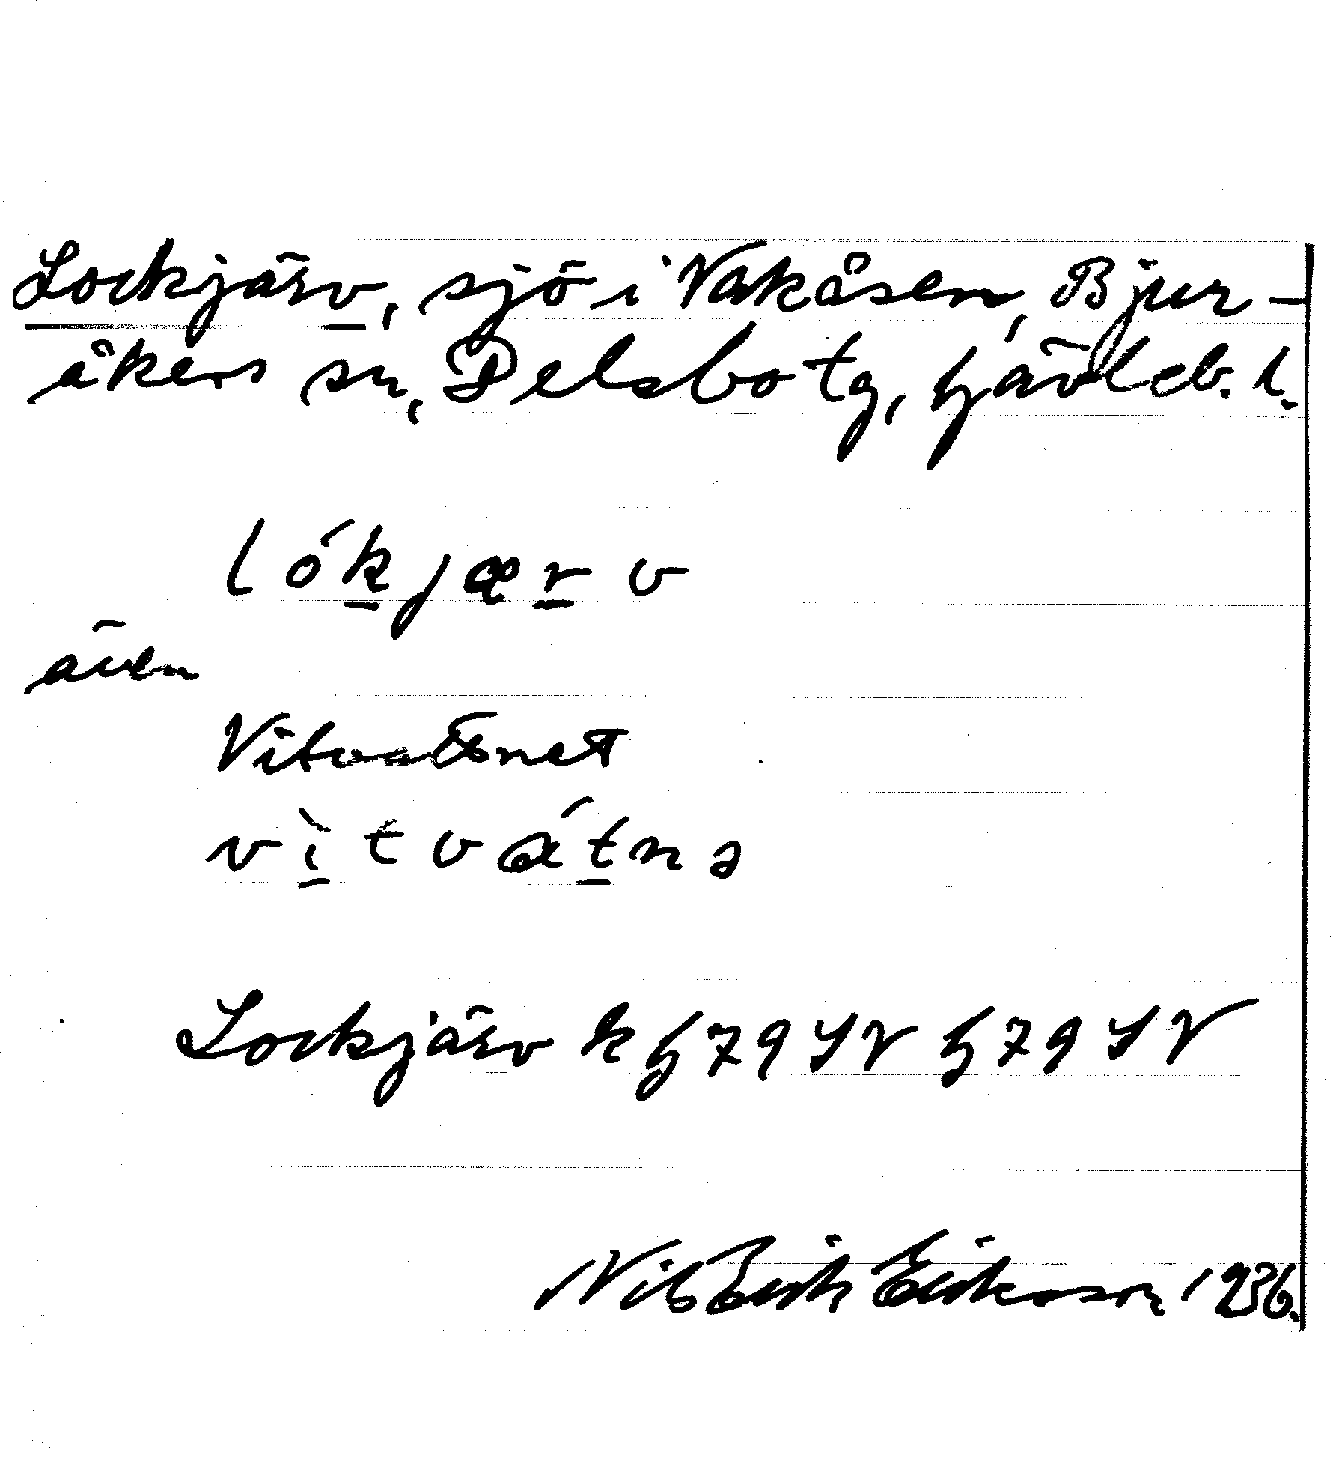 Lockjärv, sjö i Vakåsen, Bjur-
åkers sn, Delsbo tg, Gävleb. l.
lókjærv
även
Vitvattnet
vìtvátnə
Lockjärv k G79SV G79SV
Nils Erik Eriksson 1936.